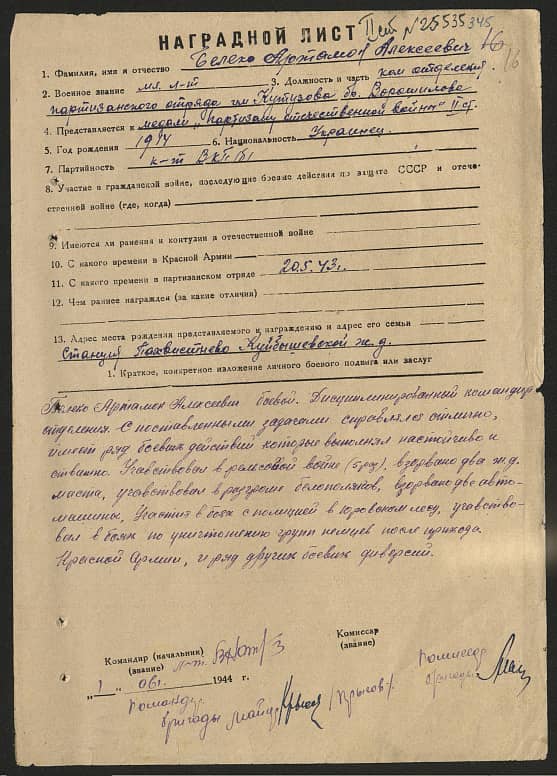 II ст N 25535345
16
16
НАГРАДНОЙ ЛИСТ
1. Фамилия, имя и отчество Белеко Артамон Алексеевич
2. Военное звание мл. л-т 3. Должность и часть ком отделения
партизанского отряда им. Кутузова бр. Ворошилова
4. Представляется к медали "партизану отечественной войны" II ст.
5. Год рождения 1914 6. Национальность Украинец
7. Партийность к-т ВКП(б)
8. Участие в гражданской войне, последующие боевые действия по защите СССР и отече-
ственной войне (где, когда)
9. Имеются ли ранения и контузии в отечественной войне
10. С какого времени в Красной Армии
11. С какого времени в партизанском отряде 20.5.43 г.
12. Чем ранее награжден (за какие отличия)
13. Адрес места рождения представляемого к награждению и адрес его семьи
Станция Похвистнево Куйбышевской ж.д.
1. Краткое, конкретное изложение личного боевого подвига или заслуг
Белеко Артамон Алексеевич боевой. Дисциплинированный командир
отделения. С поставленными задачами справлялся отлично,
имеет ряд боевых действий которые выполнял настойчиво и
Участвовал в рельсовой войне (5 раз), взорвано два ж.д.
моста, участвовал в разгроме белополяков, взорвано две авто-
машины, Участие в боях с полицией в лесу, участво-
вал в боях по уничтожению групп немцев после прихода
Красной Армии, и ряд других боевых диверсий.
Командир (начальник)
(звание) л-т
Комиссар
(звание)
"1" 061 1944 г.
Командир
бригады майор /Крысов/
Комиссар
бригады